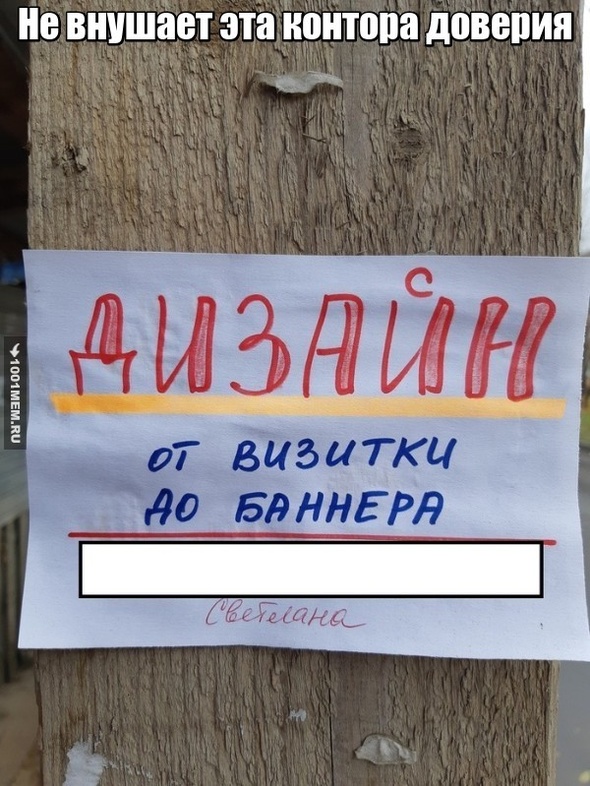 Не внушает эта контора доверия
ДИЗАЙН
от ВИЗИТКИ
ДО БАННЕРА
Светлана
1001MEM.RU